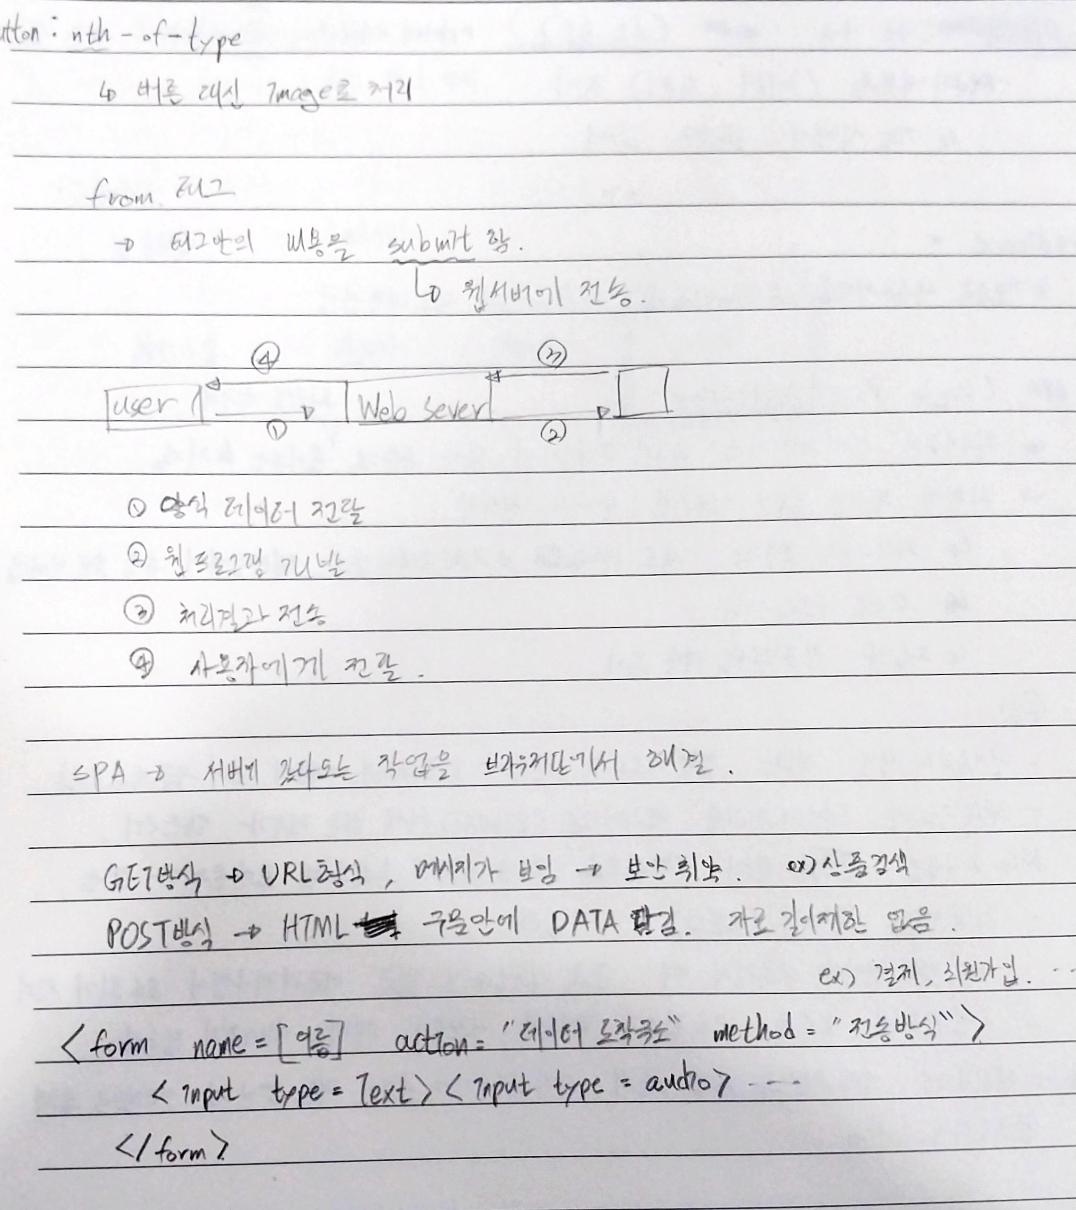 utton : nth-of-type
↳ 버튼 대신 Image로 처리
from 태그
→ 태그안의 내용을 submit 함.
↳ 웹서버에 전송.
④ ③
user Web sever
① ②
① 양식 데이터 전달
② 웹프로그램 개발
③ 처리결과 전송
④ 사용자에게 전달.
SPA → 서버에 갔다오는 작업을 브라우저단에서 해결.
GET방식 → URL형식, 메시지가 보임 → 보안 취약. ex) 상품검색
POST방식 → HTML 구문안에 DATA 담김. 자료 길이제한 없음.
ex) 결제, 회원가입. ...
<form name = [이름] action = "데이터 도착주소" method = "전송방식">
<input type = Text> <input type = audio> ----
</form>